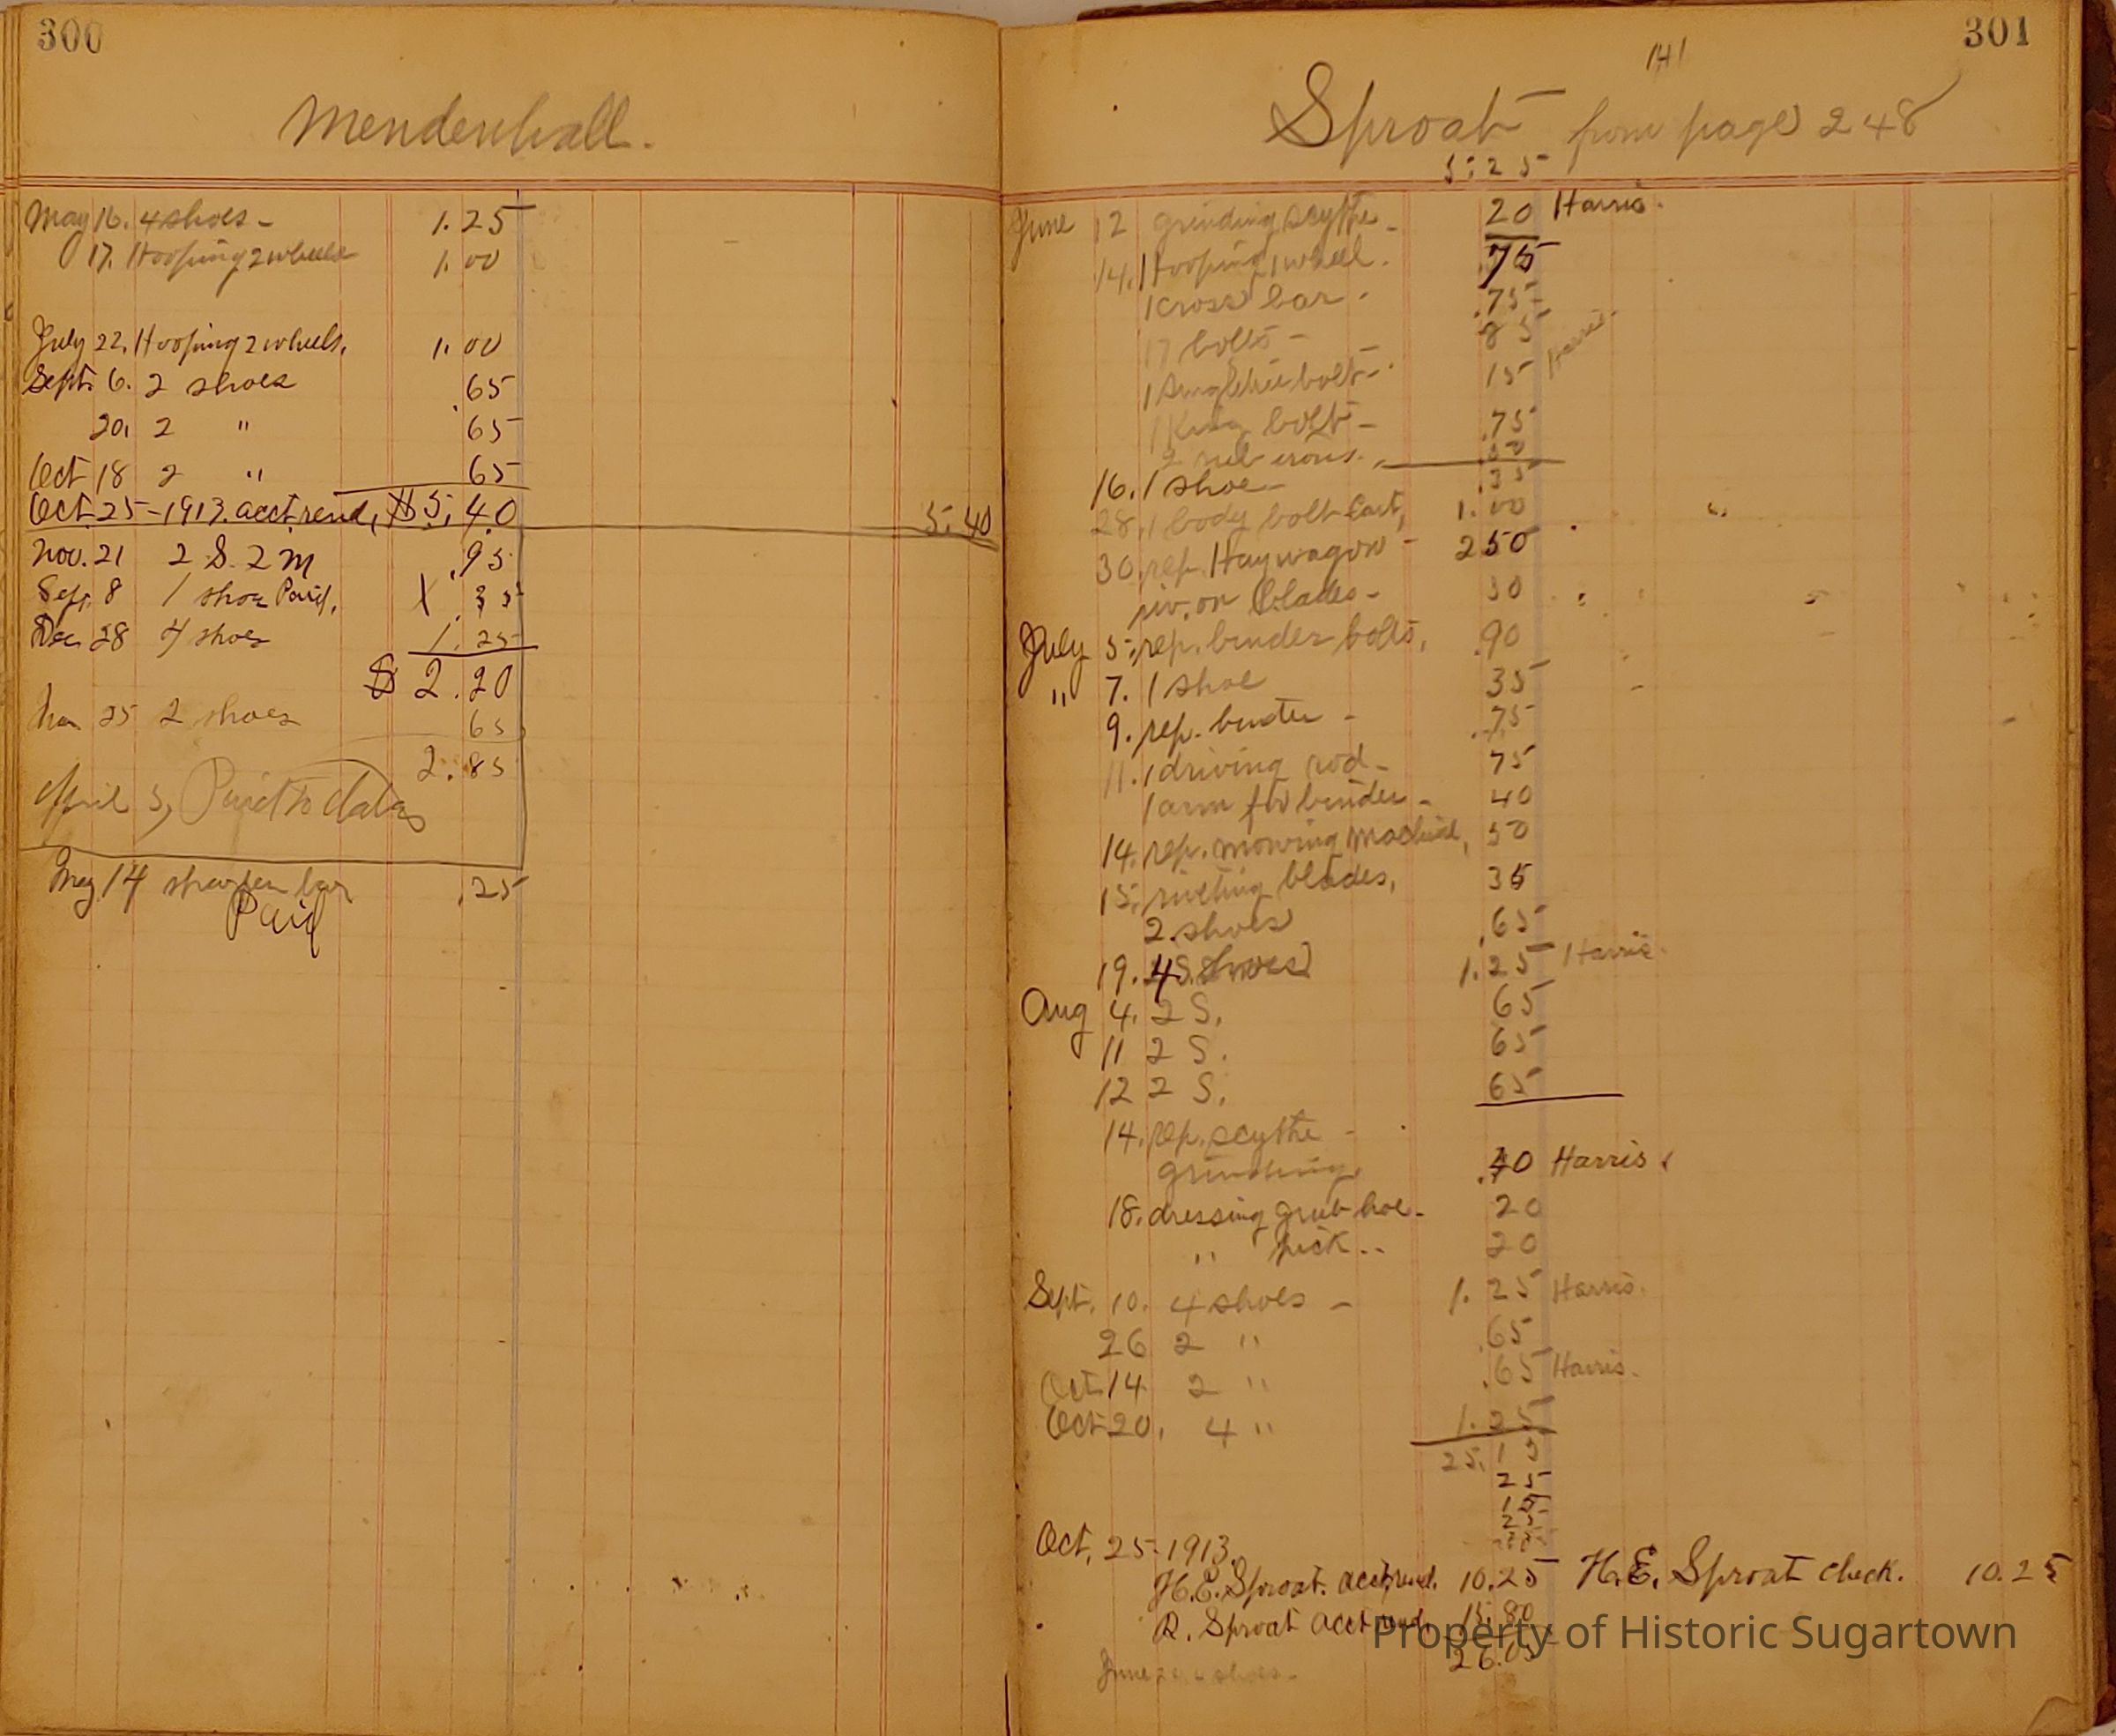 300
Mendenhall.
May 16. 4 shoes - 1.25
17. Hooping 2 wheels 1.00
July 22. Hooping 2 wheels. 1.00
Sept. 6. 2 shoes .65
20. 2 " 65
Oct 18 2 " 65
Oct. 25-1913. acct. rend, $5.40 5.40
Nov. 21 2 S. 2 M .95
Sep. 8 1 shoe Paid, X .35
Dec 28 4 shoes 1.25
$ 2.20
25 2 shoes 65
2.85
April 5, Paid to date
May 14 sharpen bar .25
Paid
301
141
Sproat from page 248
5.25
June 12 grinding scythe - 20 Harris.
14. Hooping 1 wheel. .75
1 cross bar - .75
17 bolts - 85 Harris.
1 Singletree bolt - 15
1 King bolt - .75
2 rub irons. 50
16. 1 shoe - .35
28. 1 body bolt Cart, 1.00 "
30. rep. Haywagon - 2 50
riv. on blades - 30
July 5. rep. binder bolts, .90
" 7. 1 shoe 35
9. rep. binder - .75
11. 1 driving rod - 75
1 arm for binder - 40
14. rep. mowing machine, 50
15. riveting blades, 35
2 shoes .65
19. 4 shoes 1.25 Harris.
Aug 4. 2 S. 65
11 2 S. 65
12 2 S. 65
14. rep. scythe -
grinding .40 Harris
18. dressing grub hoe - 20
" pick .. 20
Sept. 10. 4 shoes - 1.25 Harris.
26 2 " .65
Oct. 14 2 " .65 Harris.
Oct 20. 4 " 1.25
25.15
25
15
25
Oct, 25-1913.
H.E. Sproat. acct. rend. 10.25 H.E. Sproat check. 10.25
R. Sproat acct rend, 15.80
26.05
June shoes -
Property of Historic Sugartown